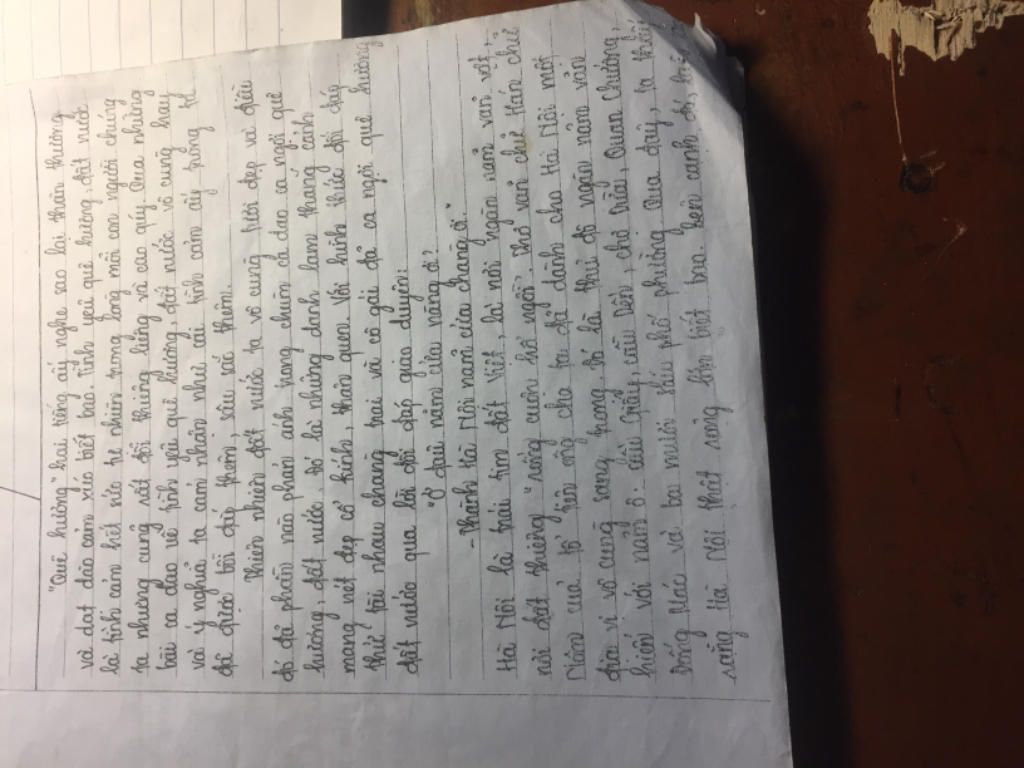 "Quê hương" hai tiếng ấy nghe sao lại thân thương
và dạt dào cảm xúc biết bao. Tình yêu quê hương, đất nước
là tình cảm hết sức tự nhiên trong lòng mỗi con người chúng
ta nhưng cũng rất đỗi thiêng liêng và cao quý. Qua những
bài ca dao về tình yêu quê hương, đất nước vô cùng hay
và ý nghĩa ta cảm nhận như cái tình cảm ấy trong ta
đã được bồi đắp thêm, sâu sắc thêm.
Thiên nhiên đất nước ta vô cùng tươi đẹp và điều
đó đã phần nào phản ánh trong chùm ca dao ca ngợi quê
hương, đất nước. Đó là những danh lam thắng cảnh
mang nét đẹp cổ kính, thân quen. Với hình thức đối đáp
thú vị nhau chàng trai và cô gái đã ca ngợi quê hương
đất nước qua lời đối đáp giao duyên:
"Ở đâu năm cửa nàng ơi?
- Thành Hà Nội năm cửa chàng ơi."
Hà Nội là trái tim đất Việt, là nơi ngàn năm văn vật,
nơi đất thiêng "rồng cuộn hổ ngồi". Thơ văn chữ Hán chữ
Nôm của tổ tiên ông cha ta đã dành cho Hà Nội một
địa vị vô cùng sang trọng đó là thủ đô ngàn năm văn
hiến với năm ô: Cầu Giấy, Cầu Dền, chợ Dừa, Quan Chưởng,
Đống Mác và ba mươi sáu phố phường. Qua đây, ta thấy
rằng Hà Nội thật rộng lớn biết bao bên cạnh đó,